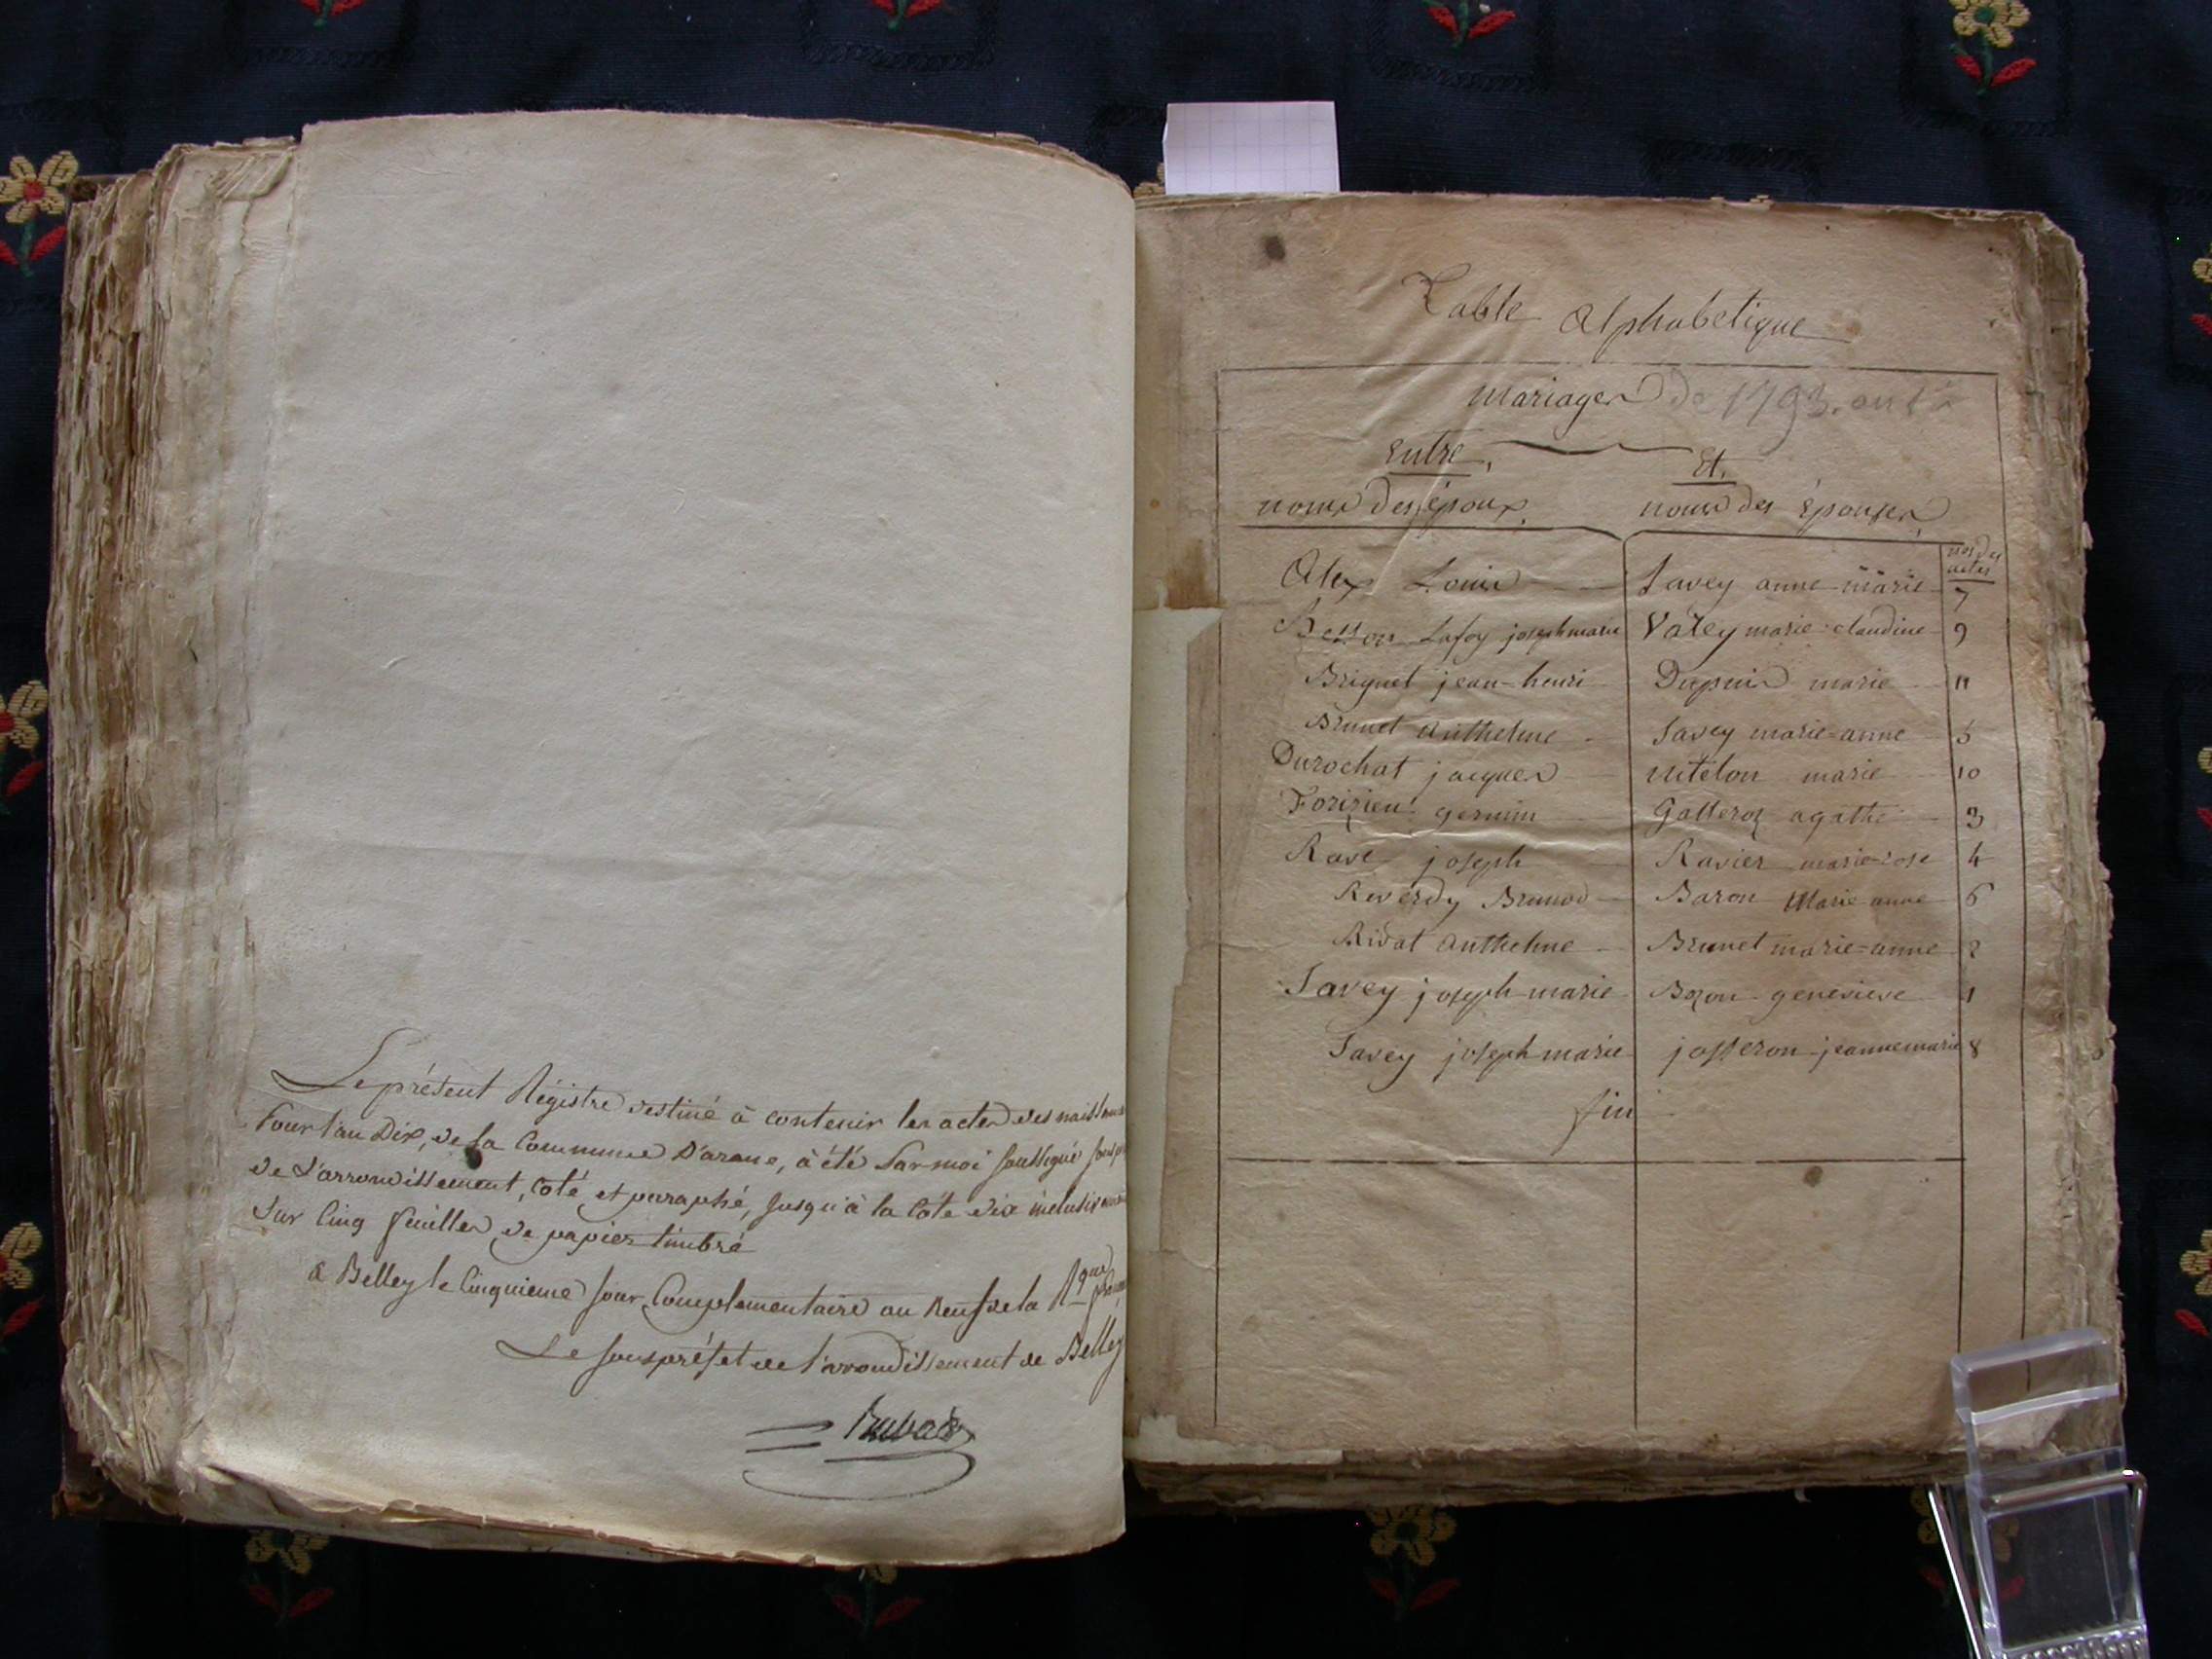 Le présent Régistre destiné à contenir les actes des naissances
Pour l'an Dix, de la Commune D'arane, à été Par moi soussigné
de L'arrondissement, Coté et paraphé, Jusqu'à la Côte dix inclusivement
Sur Cinq feuilles de papier timbré
a Belley le Cinquieme jour Complementaire an neuf de la Rque
Le sousprefet de l'arrondissement de Belley
Table Alphabetique
Mariages de 1793.
Entre, Et.
noms des époux, noms des Epouses
nos des actes
Alex Louis Savey anne-marie 7
Besson Lafoy joseph marie Vatey marie-claudine 9
Briguet jean-henri Dupuis marie 11
Brunet Anthelme Savey marie=anne 5
Durochat jacques mételon marie 10
germin agathe 3
Rave joseph Ravier marie-rose 4
Reverdy Brunod Baron Marie anne 6
Ridat Anthelme Brunet marie=anne 2
Savey joseph marie Bozon genevieve 1
Savey joseph marie josseron jeanne marie 8
fin